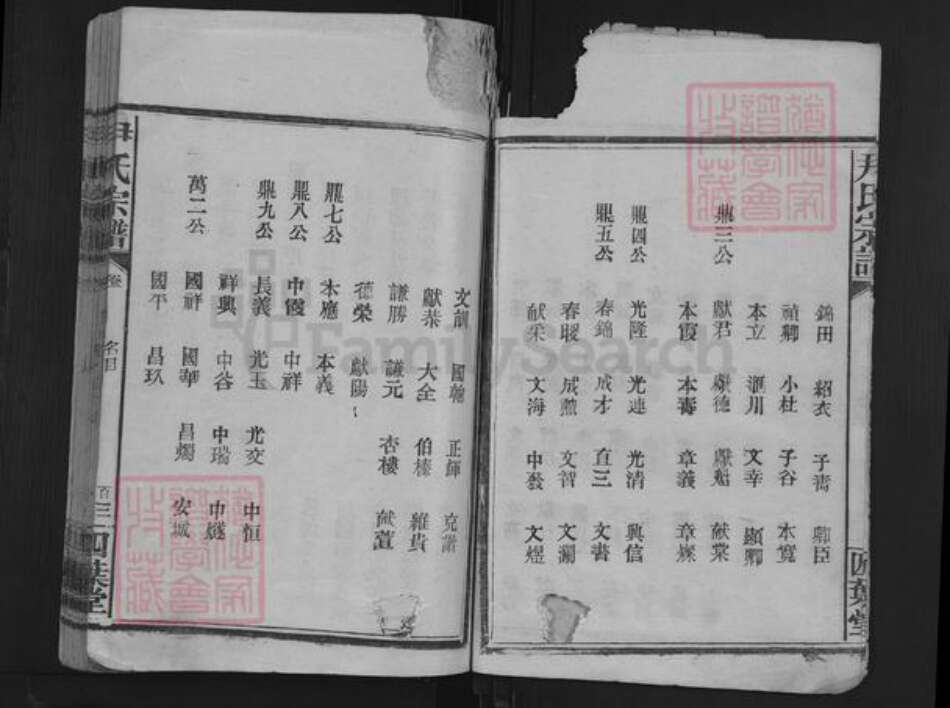 尹氏宗譜
錦田 紹衣 子靑 卿臣
禎卿 小杜 子谷 本寬
本立 滙川 文幸 顯卿
鼎三公 獻君 獻德 獻魁 献棠
本霞 本壽 章義 章燦
鼎四公 光隆 光連 光清 興信
鼎五公 春錦 成才 直三 文書
春暖 成勲 文智 文灝
献采 文海 中發 文煜
文訓 國翰 正鐸 克諧
獻恭 大全 伯榛 維貴
謙勝 謙元 杏樓 献萱
德榮 獻陽
鼎七公 本應 本義
鼎八公 中霞 中祥
鼎九公 長義 光玉 光交 中恒
祥興 中谷 中瑞 中燧
萬二公 國祥 國華 昌燭 安城
國平 昌玖
尹氏宗譜 卷 名目 百三 四葉堂
FamilySearch